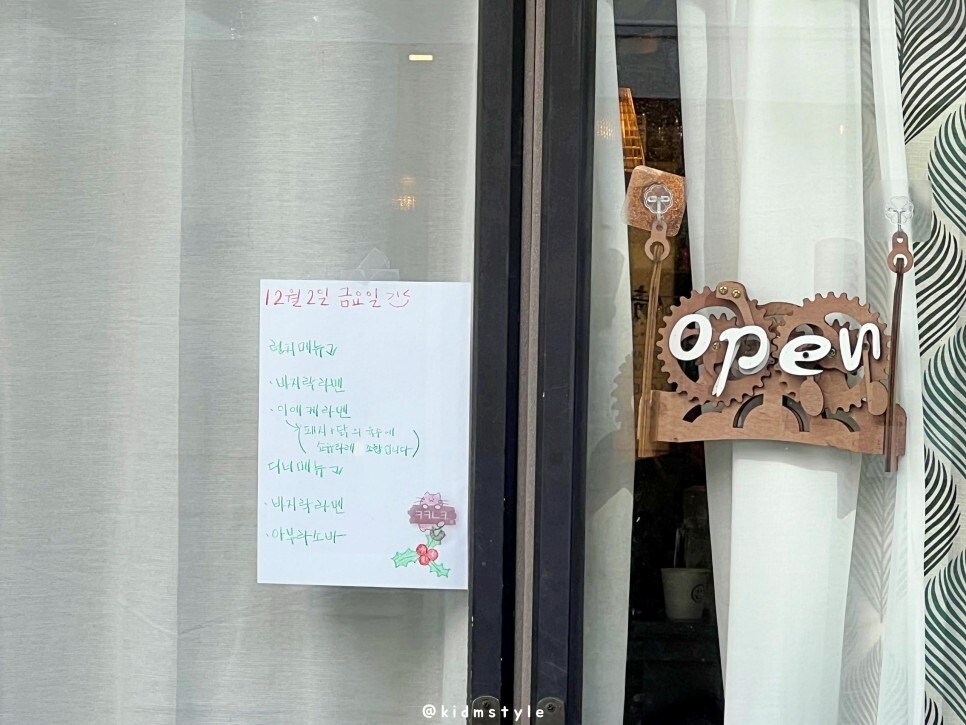 12월 2일 금요일
런치메뉴
· 바지락라멘
· 이에케라멘
(돼지+닭의 육수에
소유타레 조합입니다)
디너메뉴
· 바지락라멘
· 아부라소바
ㅋㅋㄴㅋ
open
@kidmstyle